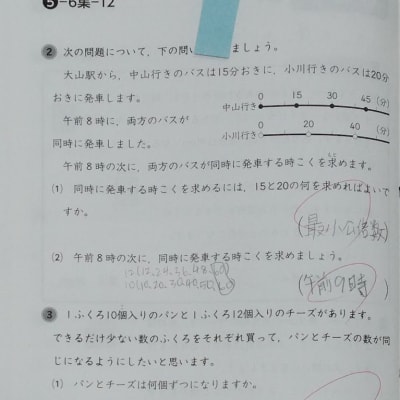 5-6集-12
2 次の問題について、下の問い ましょう。
大山駅から、中山行きのバスは15分おきに、小川行きのバスは20分
おきに発車します。
0 15 30 45 (分)
中山行き
午前8時に、両方のバスが
0 20 40 (分)
小川行き
同時に発車しました。
午前8時の次に、両方のバスが同時に発車する時こくを求めます。
(1) 同時に発車する時こくを求めるには、15と20の何を求めればよいで
すか。
(最小公倍数)
(2) 午前8時の次に、同時に発車する時こくを求めましょう。
12(12,24,36,48,60)
10(10,20,30,40,50,60)
(午前9時)
3 1ふくろ10個入りのパンと1ふくろ12個入りのチーズがあります。
できるだけ少ない数のふくろをそれぞれ買って、パンとチーズの数が同
じになるようにしたいと思います。
(1) パンとチーズは何個ずつになりますか。